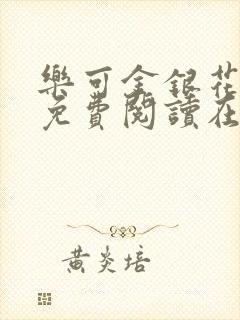 樂可金銀花
免費閱讀在
黃炎培